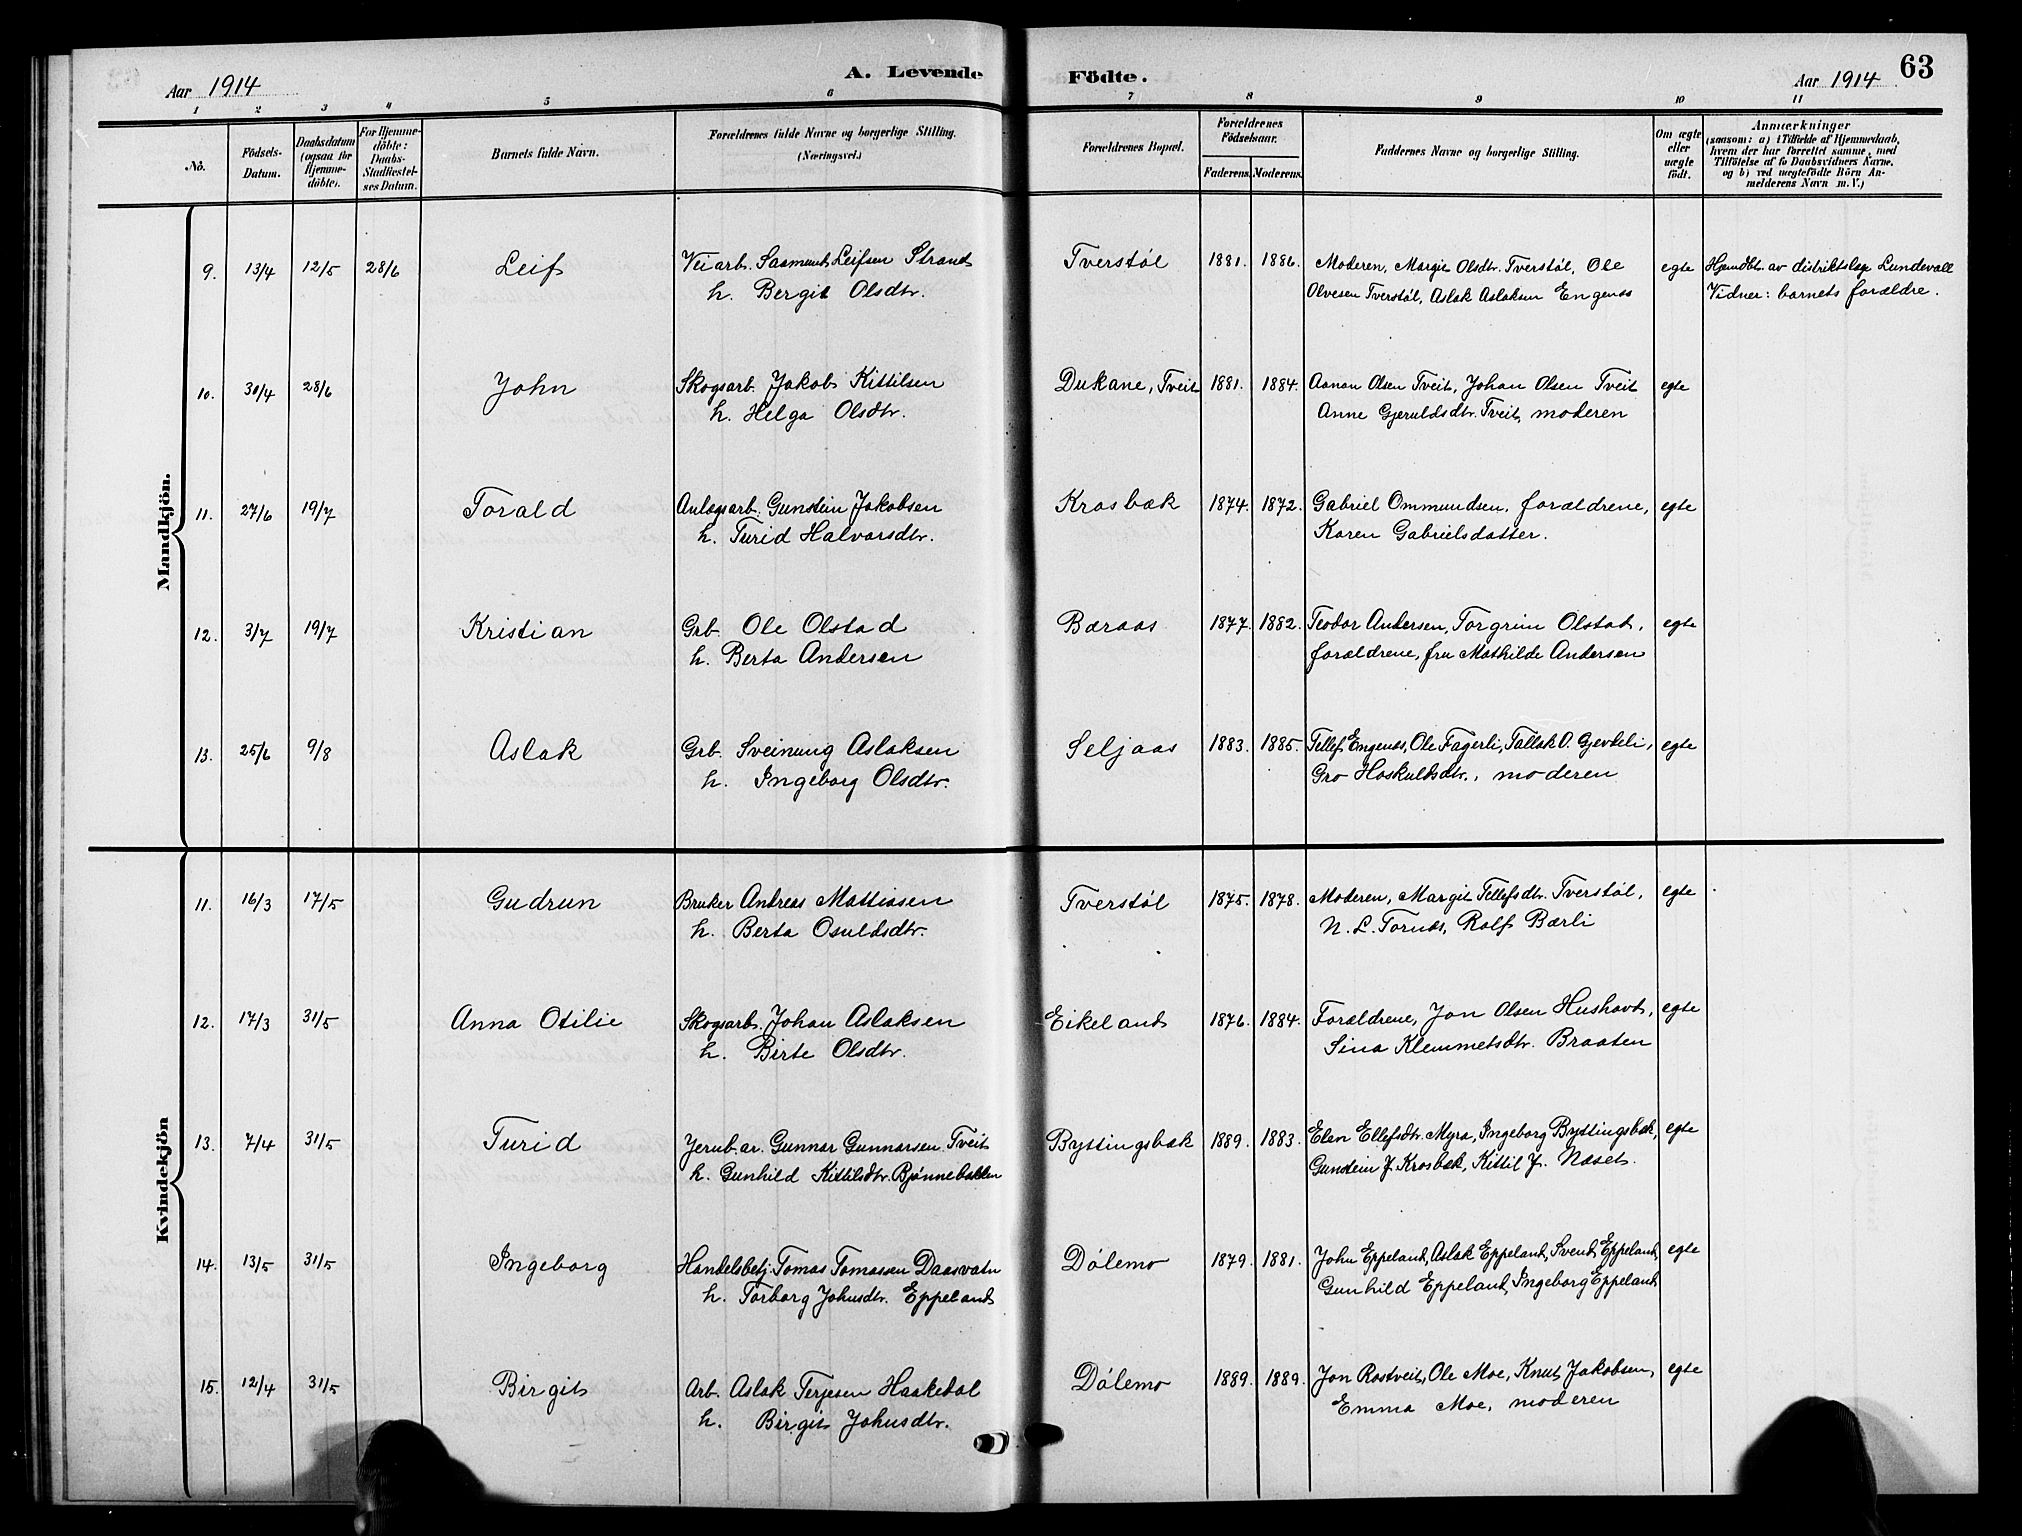 Aar 1914
A. Levende Födte.
Aar 1914
63
1 2 3 4 5 6 7 8 9 10 11
No.
Födsels-
Datum.
Daabsdatum
(ogsaa för
Hjemme-
döbte).
For Hjemme-
döbte:
Daabs-
Stadfæstel-
ses Datum.
Barnets fulde Navn.
Forældrenes fulde Navne og borgerlige Stilling.
(Næringsvei.)
Forældrenes Bopæl.
Forældrenes
Födselsaar.
Faderens. Moderens.
Faddernes Navne og borgerlige Stilling.
Om ægte
eller
uægte
födt.
Anmærkninger
(saasom: a) i Tilfælde af Hjemmedaab,
hvem der har forrettet samme, med
Tilföielse af to Daabsvidners Navne.
og b) ved uægtefödte Börn An-
melderens Navn m. V.)
Mandkjön.
9. 13/4 12/5 28/6 Leif Veiarb. Saamund Leifsen Strand Tverstøl 1881. 1886. Moderen, Margit Olsdtr. Tverstøl, Ole egte Hjemdbt. av distriktslæge Lundevall
h. Bergit Olsdtr. Olvesen Tverstøl, Aslak Aslaksen Engenes Vidner: barnets forældre.
10. 30/4 28/6 John Skogsarb. Jakob Kittilsen Dukane, Tveit 1881. 1884. Aanon Olsen Tveit, Johan Olsen Tveit egte
h. Helga Olsdtr. Anne Gjeruldsdtr. Tveit, moderen
11. 27/6 19/7 Torald Anlægsarb. Gunstein Jakobsen Krosbæk 1874. 1872. Gabriel Ommundsen, forældrene, egte
h. Turid Halvorsdtr. Karen Gabrielsdatter.
12. 3/7 19/7 Kristian Grb. Ole Olstad Bæraas 1877. 1882. Teodor Andersen, Torgrim Olstad, egte
h. Berta Andersen forældrene, fru Mathilde Andersen
13. 25/6 9/8 Aslak Grb. Sveinung Aslaksen Seljaas 1883. 1885. Tellef Engenes, Ole Fagerli, Tallak O. Gjevdeli, egte
h. Ingeborg Olsdtr. Gro Hoskuldsdtr., moderen
Kvindekjön
11. 16/3 17/5 Gudrun Bruker Andreas Mattiasen Tverstøl 1875. 1878. Moderen, Margit Tellefsdtr. Tverstøl, egte
h. Berta Osuldsdtr. N. L. Tornes, Rolf Bærli
12. 17/3 31/5 Anna Otilie Skogsarb. Johan Aslaksen Eikeland 1876. 1884. Forældrene, Jon Olsen Hushovd, egte
h. Birte Olsdtr. Sina Klemmetsdtr. Braaten
13. 7/4 31/5 Turid Jernb.ar. Gunnar Gunnarsen Tveit Byttingsbæk 1889. 1883. Elen Ellefsdtr. Myra, Ingeborg Byttingsbæk, egte
h. Gunhild Kittilsdtr. Bjønnebakken Gunstein J. Krosbæk, Kittil J. Næset.
14. 13/5 31/5 Ingeborg Handelsbetj. Tomas Tomassen Daasvatn Dölemo 1879. 1881. John Eppeland, Aslak Eppeland, Svend Eppeland, egte
h. Torborg Johnsdtr. Eppeland Gunhild Eppeland, Ingeborg Eppeland
15. 12/4 31/5 Birgit Arb. Aslak Terjesen Haakedal Dölemo 1889. 1889. Jon Rostveit, Ole Moe, Knut Jakobsen, egte
h. Birgit Johnsdtr. Emma Moe, moderen